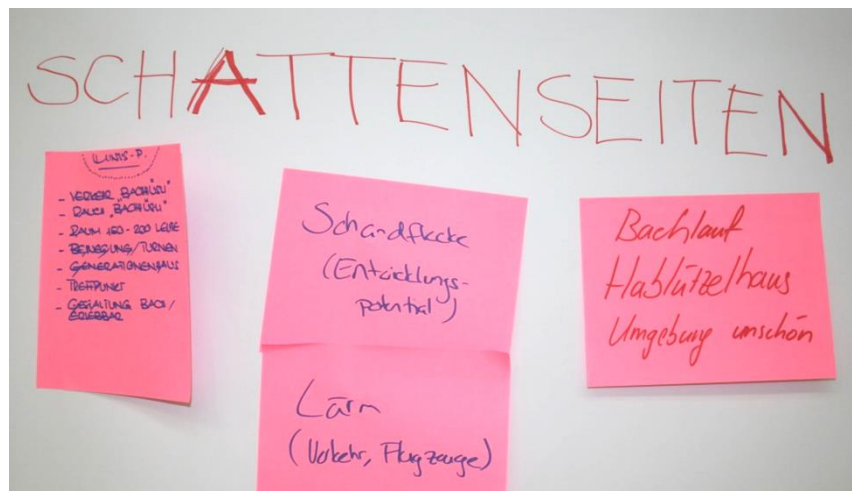 SCHATTENSEITEN
- VERKEHR „BACHÜSLI"
- RAUCH „BACHÜSLI"
- RAUM 150 - 200 LEUTE
- BEWEGUNG / TURNEN
- GENERATIONENHAUS
- TREFFPUNKT
- GESTALTUNG BACH /
ERLEBBAR
Schandflecke
(Entwicklungs-
potential)
Lärm
(Verkehr, Flugzeuge)
Bachlauf
Hablützelhaus
Umgebung unschön